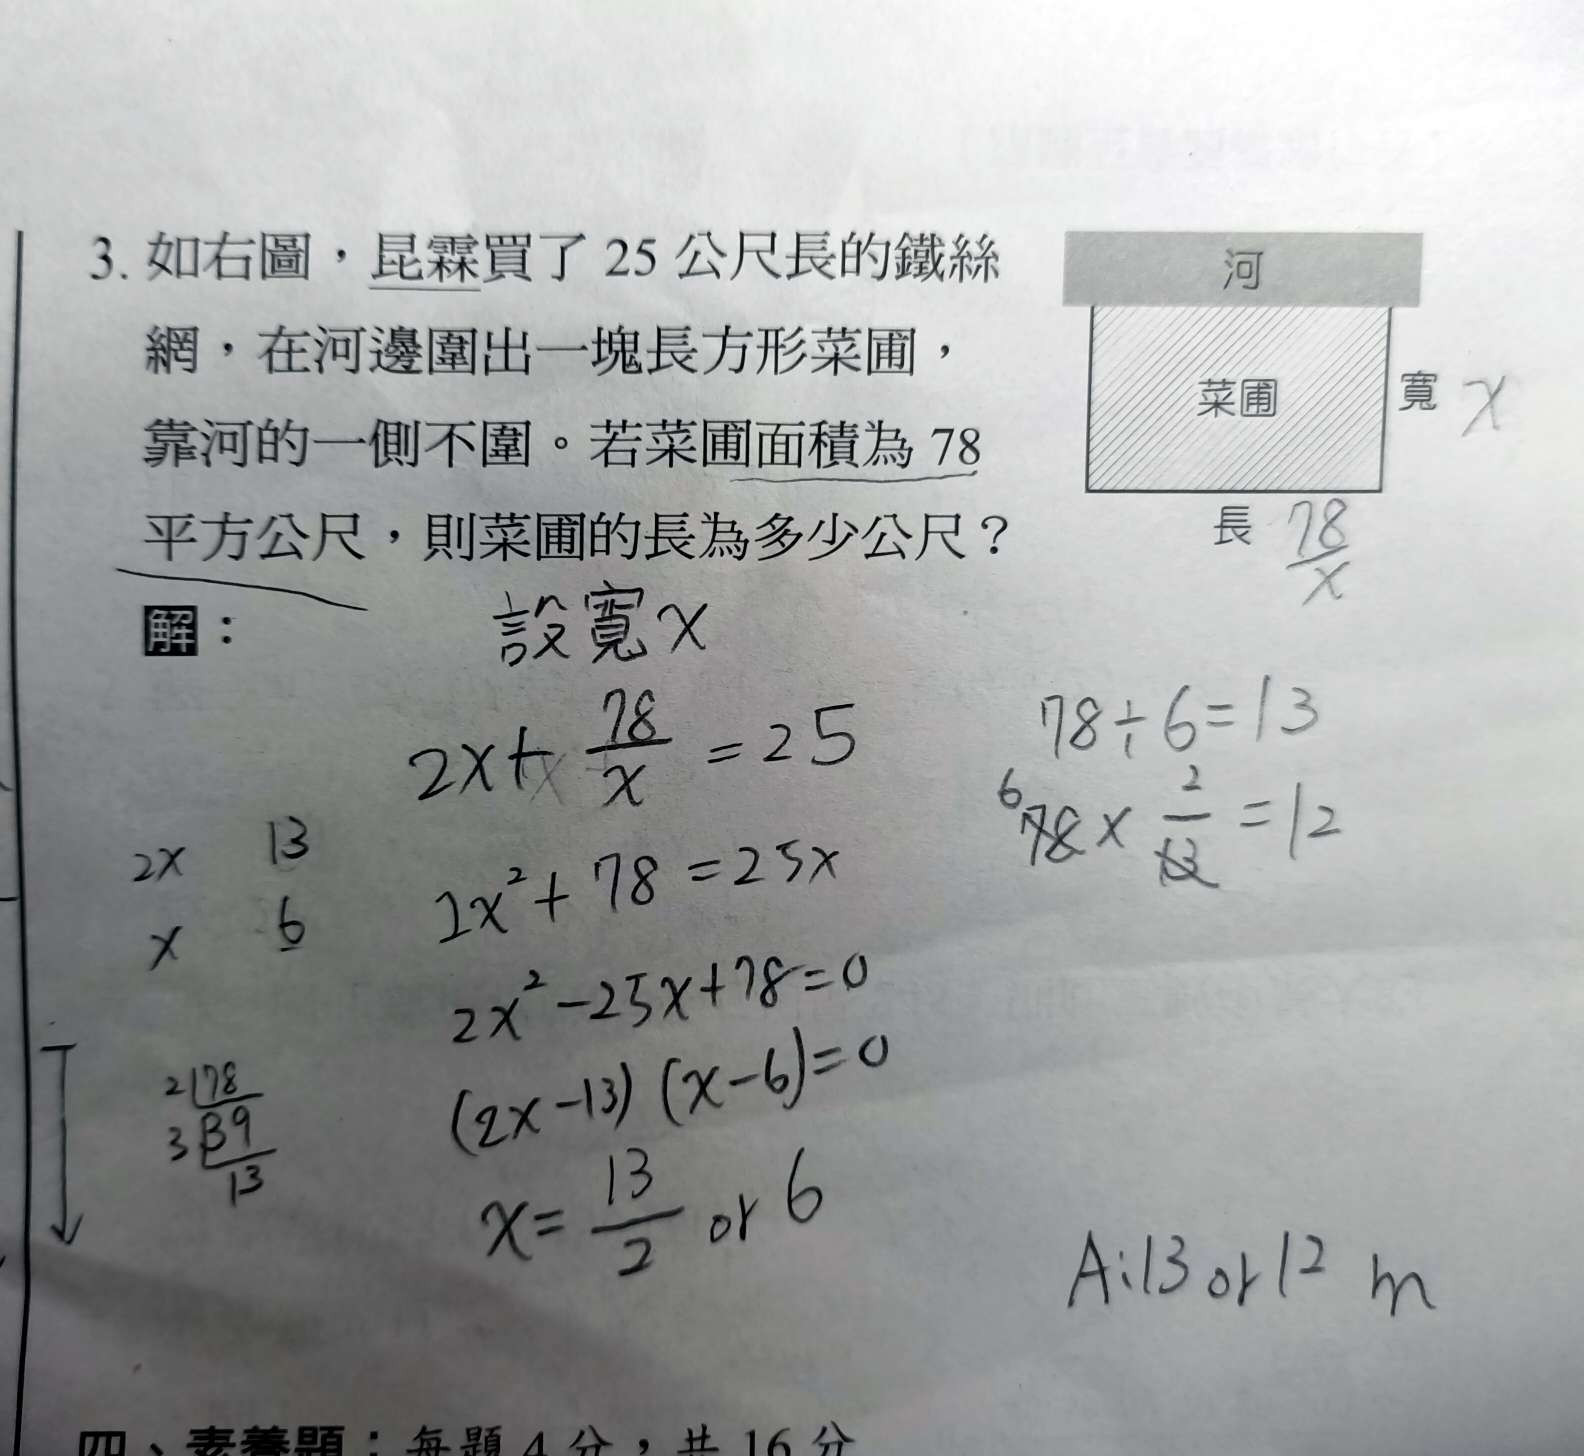 3. 如右圖，昆霖買了 25 公尺長的鐵絲
網，在河邊圍出一塊長方形菜圃，
靠河的一側不圍。若菜圃面積為 78
平方公尺，則菜圃的長為多少公尺？
河
菜圃
寬 x
長 78/x
解：
設寬 x
2x + 78/x = 25
2x² + 78 = 25x
2x² - 25x + 78 = 0
(2x - 13) (x - 6) = 0
x = 13/2 or 6
2x 13
x 6
2 78
3 39
13
78 ÷ 6 = 13
6 78 × 2/13 = 12
A: 13 or 12 m
四、素養題：每題 4 分，共 16 分